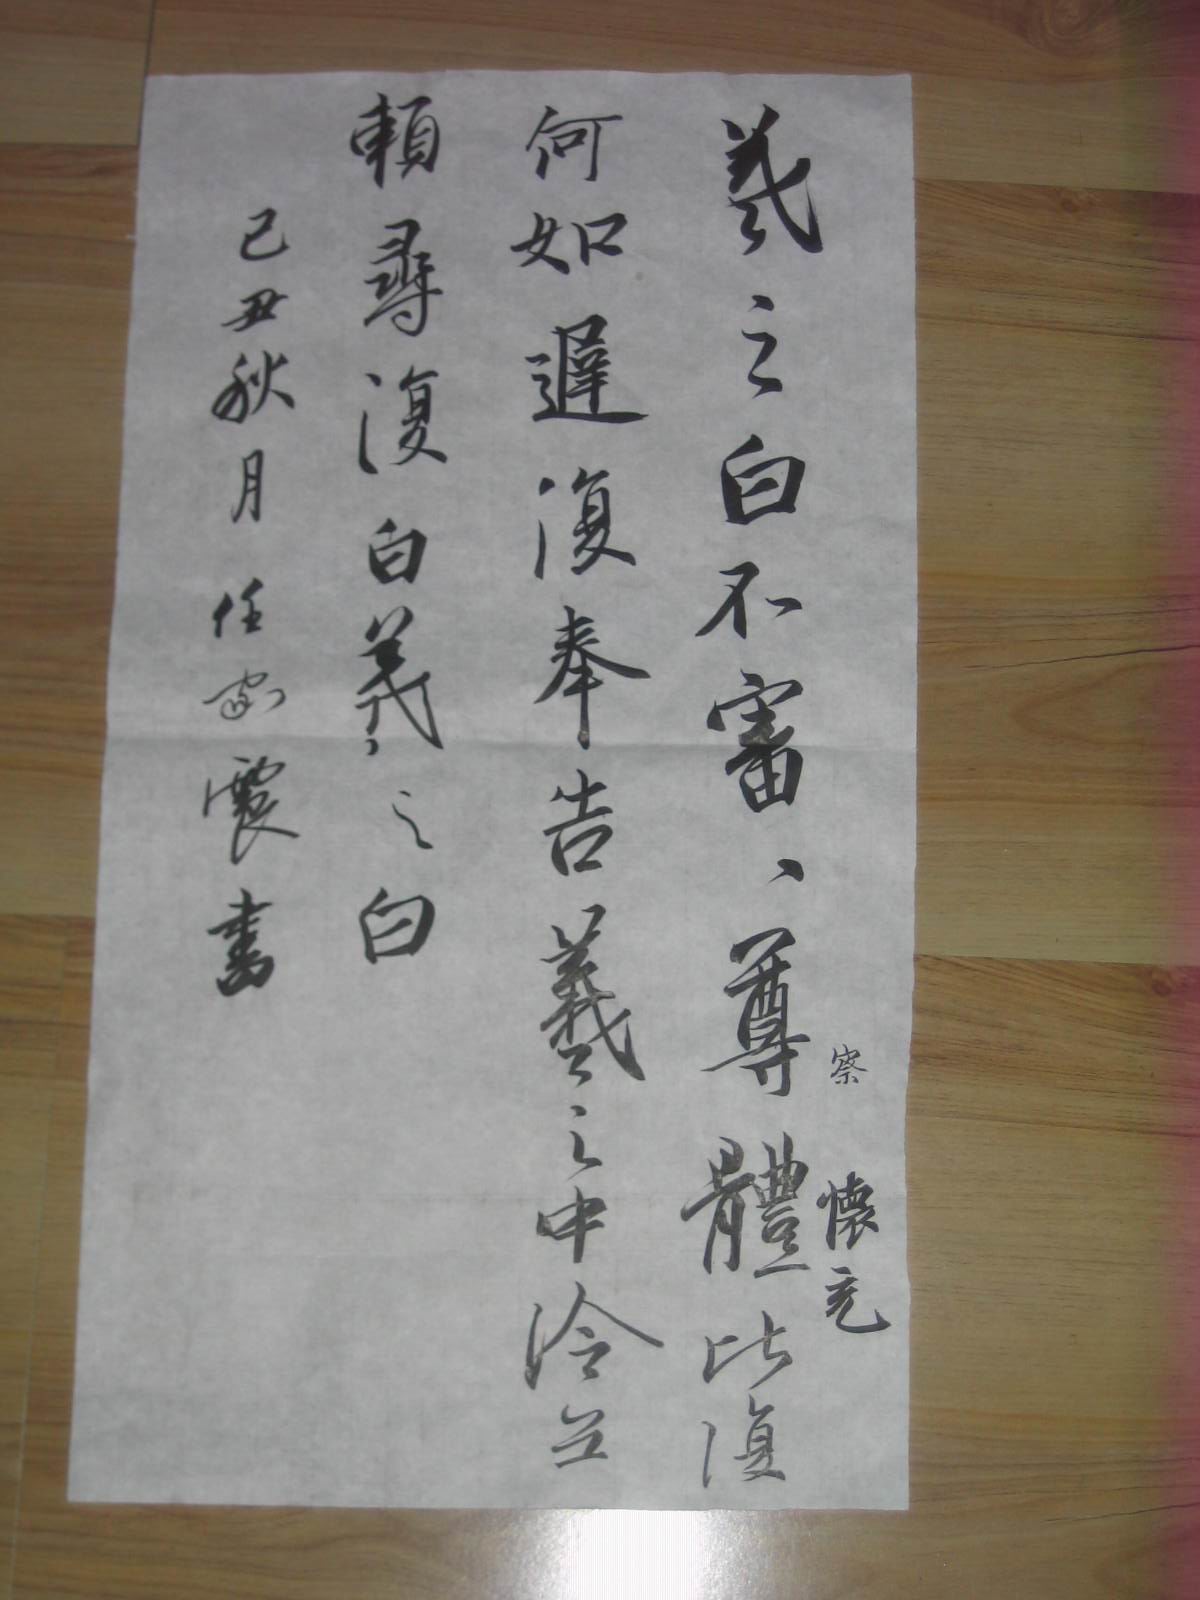 察
懷充
羲之白不審、尊體比復
何如遲復奉告羲之中冷無
賴尋復白羲之白
己丑秋月任震書